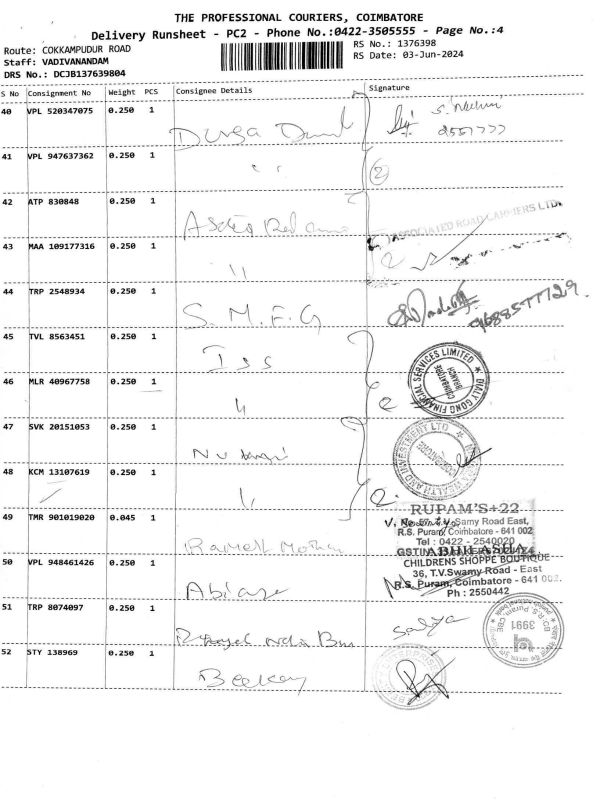 THE PROFESSIONAL COURIERS, COIMBATORE
Delivery Runsheet - PC2 - Phone No.:0422-3505555 - Page No.:4
Route: COKKAMPUDUR ROAD
Staff: VADIVANANDAM
DRS No.: DCJB137639804
RS No.: 1376398
RS Date: 03-Jun-2024
S No Consignment No Weight PCS Consignee Details Signature
40 VPL 520347075 0.250 1 Durga
41 VPL 947637362 0.250 1 " (2)
42 ATP 830848 0.250 1
ASSOCIATED ROAD CARRIERS LTD.
43 MAA 109177316 0.250 1 "
44 TRP 2548934 0.250 1 S.M.F.G
45 TVL 8563451 0.250 1 Iss
FINANCIAL SERVICES LIMITED
COIMBATORE
BRANCH
46 MLR 40967758 0.250 1 "
47 SVK 20151053 0.250 1
AND INVESTMENT LTD
48 KCM 13107619 0.250 1 "
RUPAM'S+22
49 TMR 901019020 0.045 1 Ramesh
Samy Road East,
R.S. Puram, Coimbatore - 641 002
Tel : 0422 - 2540020
ABHILASHA
50 VPL 948461426 0.250 1
CHILDRENS SHOPPE BOUTIQUE
36, T.V.Swamy Road - East
R.S. Puram, Coimbatore - 641 002.
Ph : 2550442
51 TRP 8074097 0.250 1 Satya
3991
52 STY 138969 0.250 1 Beekay